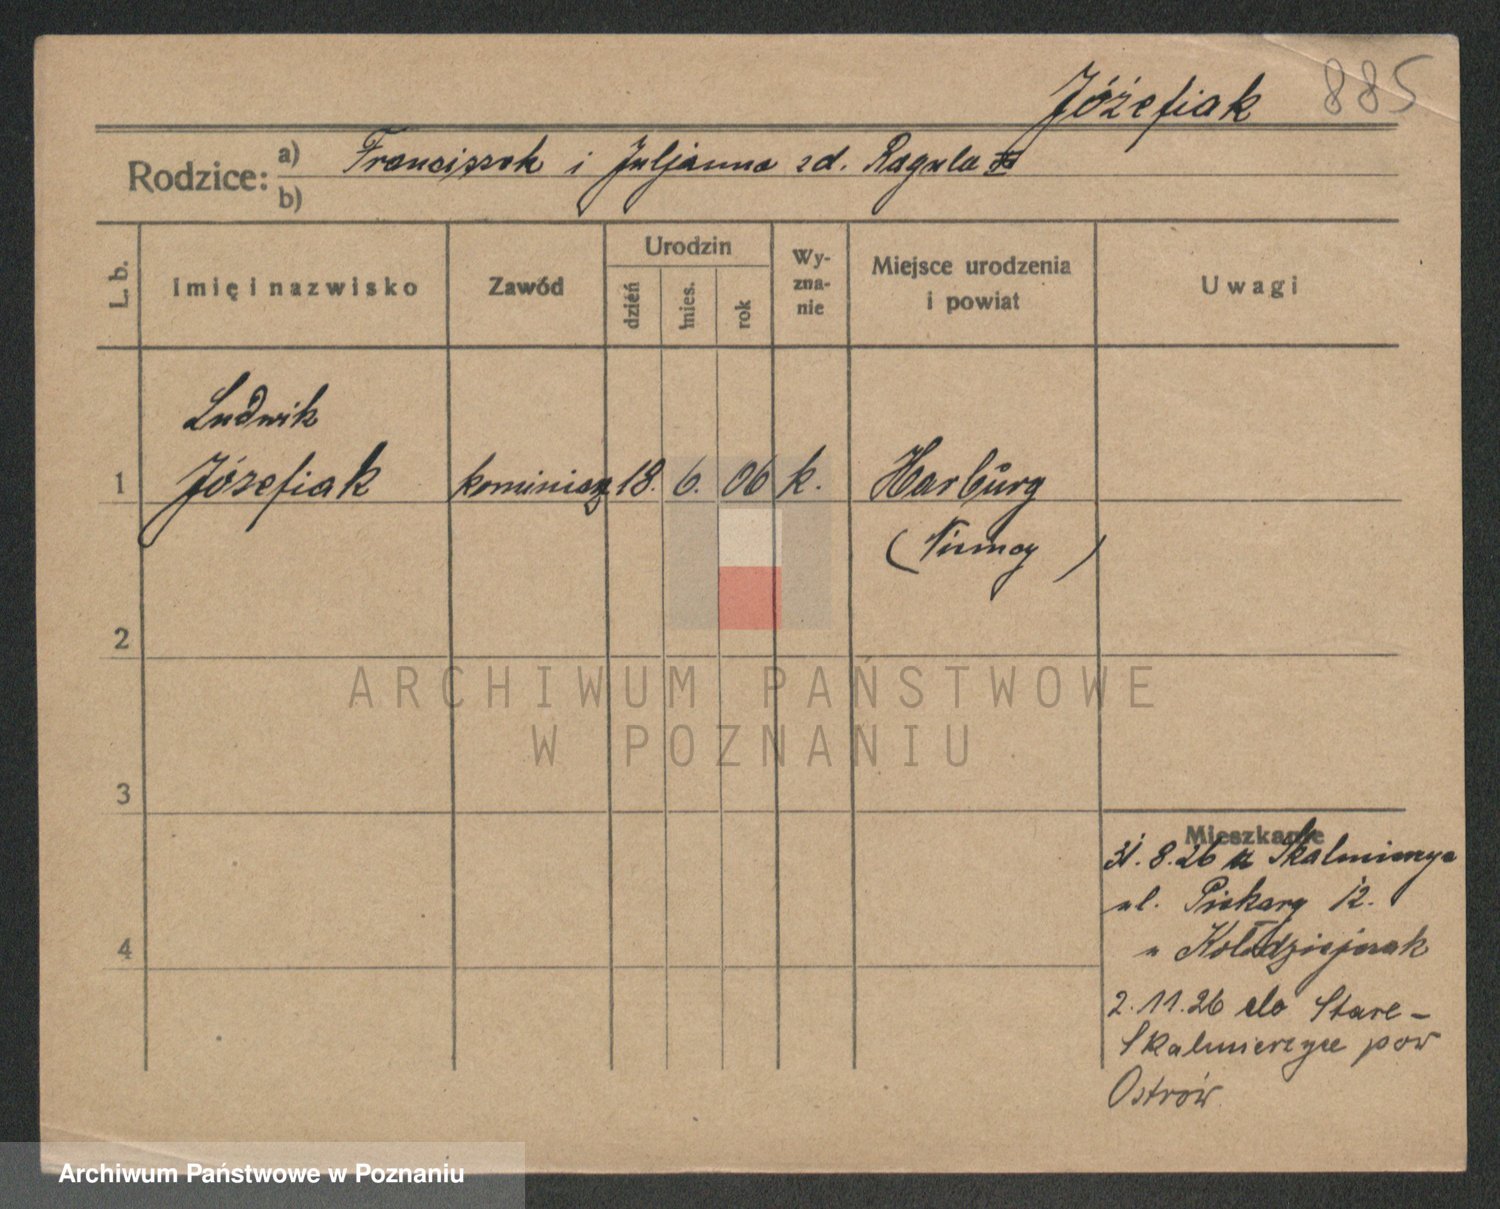 Józefiak 885
Rodzice: a) Franciszek i Juljanna zd. Ragula
b)
L. b. Imię i nazwisko Zawód Urodzin dzień mies. rok Wyznanie Miejsce urodzenia i powiat Uwagi
Ludwik
1 Józefiak kominiarz 18. 6. 06 k. Harburg
(Niemcy)
2
ARCHIWUM PAŃSTWOWE
W POZNANIU
3
Mieszkanie
31. 8. 26 z Skalmierzyc
ul. Piekary 12.
u Kołodziejczak
4
2. 11. 26 do Stare-
Skalmierzyce pow
Ostrów
Archiwum Państwowe w Poznaniu